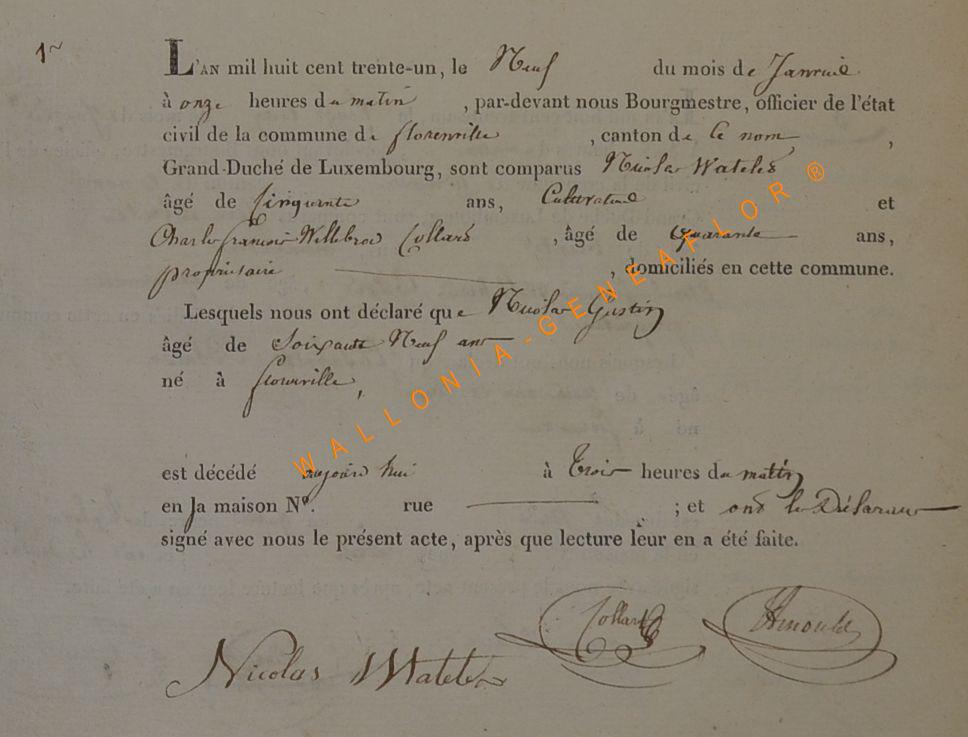 1er
L'AN mil huit cent trente-un, le Neuf du mois de Janvier
à onze heures du matin, par-devant nous Bourgmestre, officier de l'état
civil de la commune de florenville, canton de Ce nom,
Grand-Duché de Luxembourg, sont comparus Nicolas Watelet
âgé de Cinquante ans, Cultivateur et
Charles françois Willebrod Collard, âgé de quarante ans,
propriétaire, domiciliés en cette commune.
Lesquels nous ont déclaré que Nicolas Gustin
âgé de Soixante Neuf ans
né à florenville,
est décédé aujourd'hui à Trois heures du matin
en sa maison N°. rue ; et ont les Déclarans
signé avec nous le présent acte, après que lecture leur en a été faite.
Nicolas Watelet Collard Arnould
WALLONIA-GENEAFLOR ®